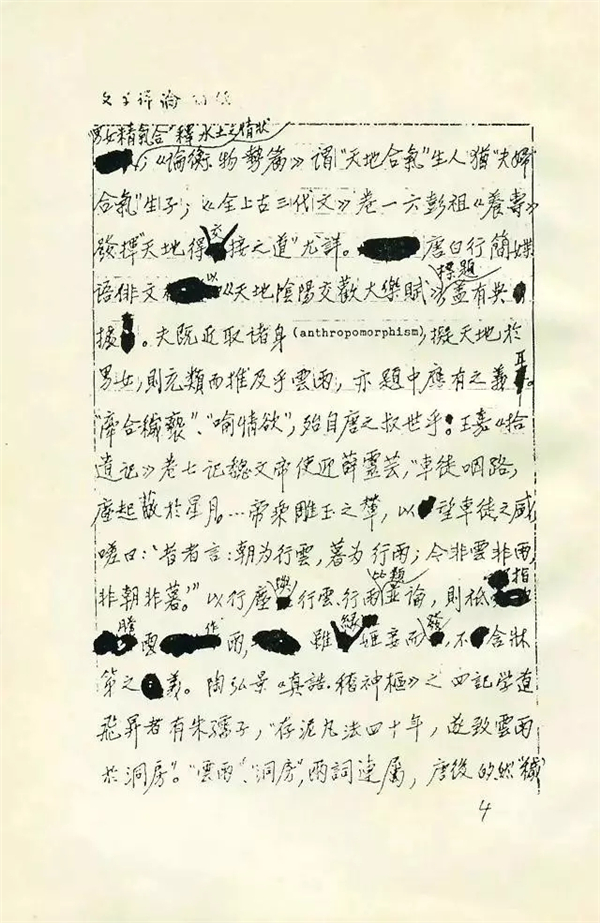 文学评论
"男女精氣合"釋水土之情狀
；《論衡·物勢篇》謂"天地合氣"生人猶"夫婦
合氣"生子；《全上古三代文》卷一六彭祖《養壽》
發揮"天地得交接之道"尤詳。唐白行簡媟
語俳文以《天地陰陽交歡大樂賦》標題，蓋有典
據。夫既近取諸身(anthropomorphism)，擬天地於
男女，則充類而推及乎雲雨，亦題中應有之義耳。
"牽合穢褻"、"喻情欲"，殆自唐之叔世乎！王嘉《拾
遺記》卷七記魏文帝使迎薛靈芸，"車徒咽路，
塵起蔽於星月。…帝乘雕玉之輦，以望車徒之盛，
嗟曰：'昔者言：朝為行雲，暮為行雨；今非雲非雨，
非朝非暮。'"以行塵與行雲、行雨比類並論，則祗指
騰雲作雨，雖緣姬妾而發，不含牀
第之義。陶弘景《真誥·稽神樞》之四記学道
飛昇者有朱孺子，"存泥丸法四十年，遂致雲雨
於洞房"。"雲雨"、"洞房"，兩詞連屬，唐後的然"穢
4